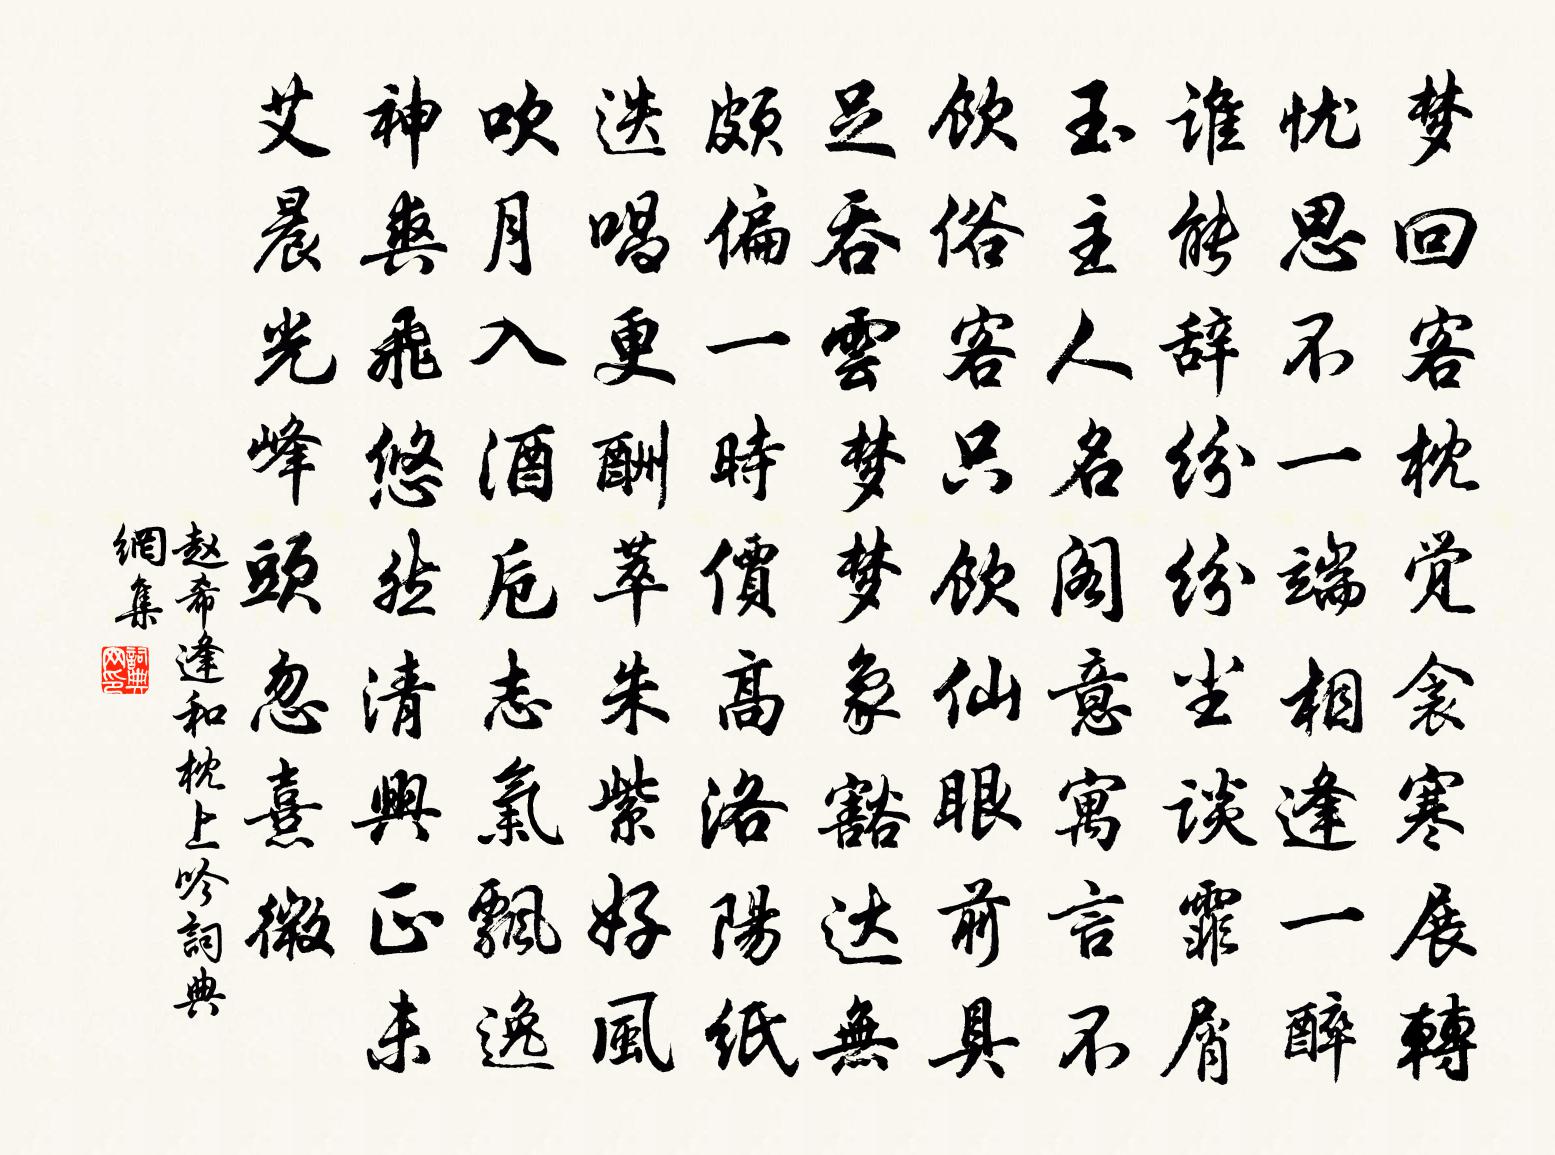 梦回客枕觉衾寒展轉
忧思不一端相逢一醉
谁能辞纷纷坐谈霏屑
玉主人名阁意寓言不
饮俗客只饮仙眼前具
足吞雲梦梦象豁达無
颇偏一時價高洛陽纸
迭唱更酬萃朱紫好風
吹月入酒卮志氣飄逸
神爽飛悠然清興正未
艾晨光峰頭忽熹微
赵希逢和枕上吟詞典
網集
詞典网印